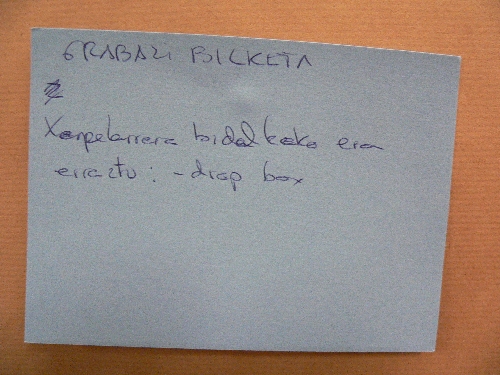 GRABAZI BILKETA
Xanpelarrera bidaltzeko era
erraztu: - drop box